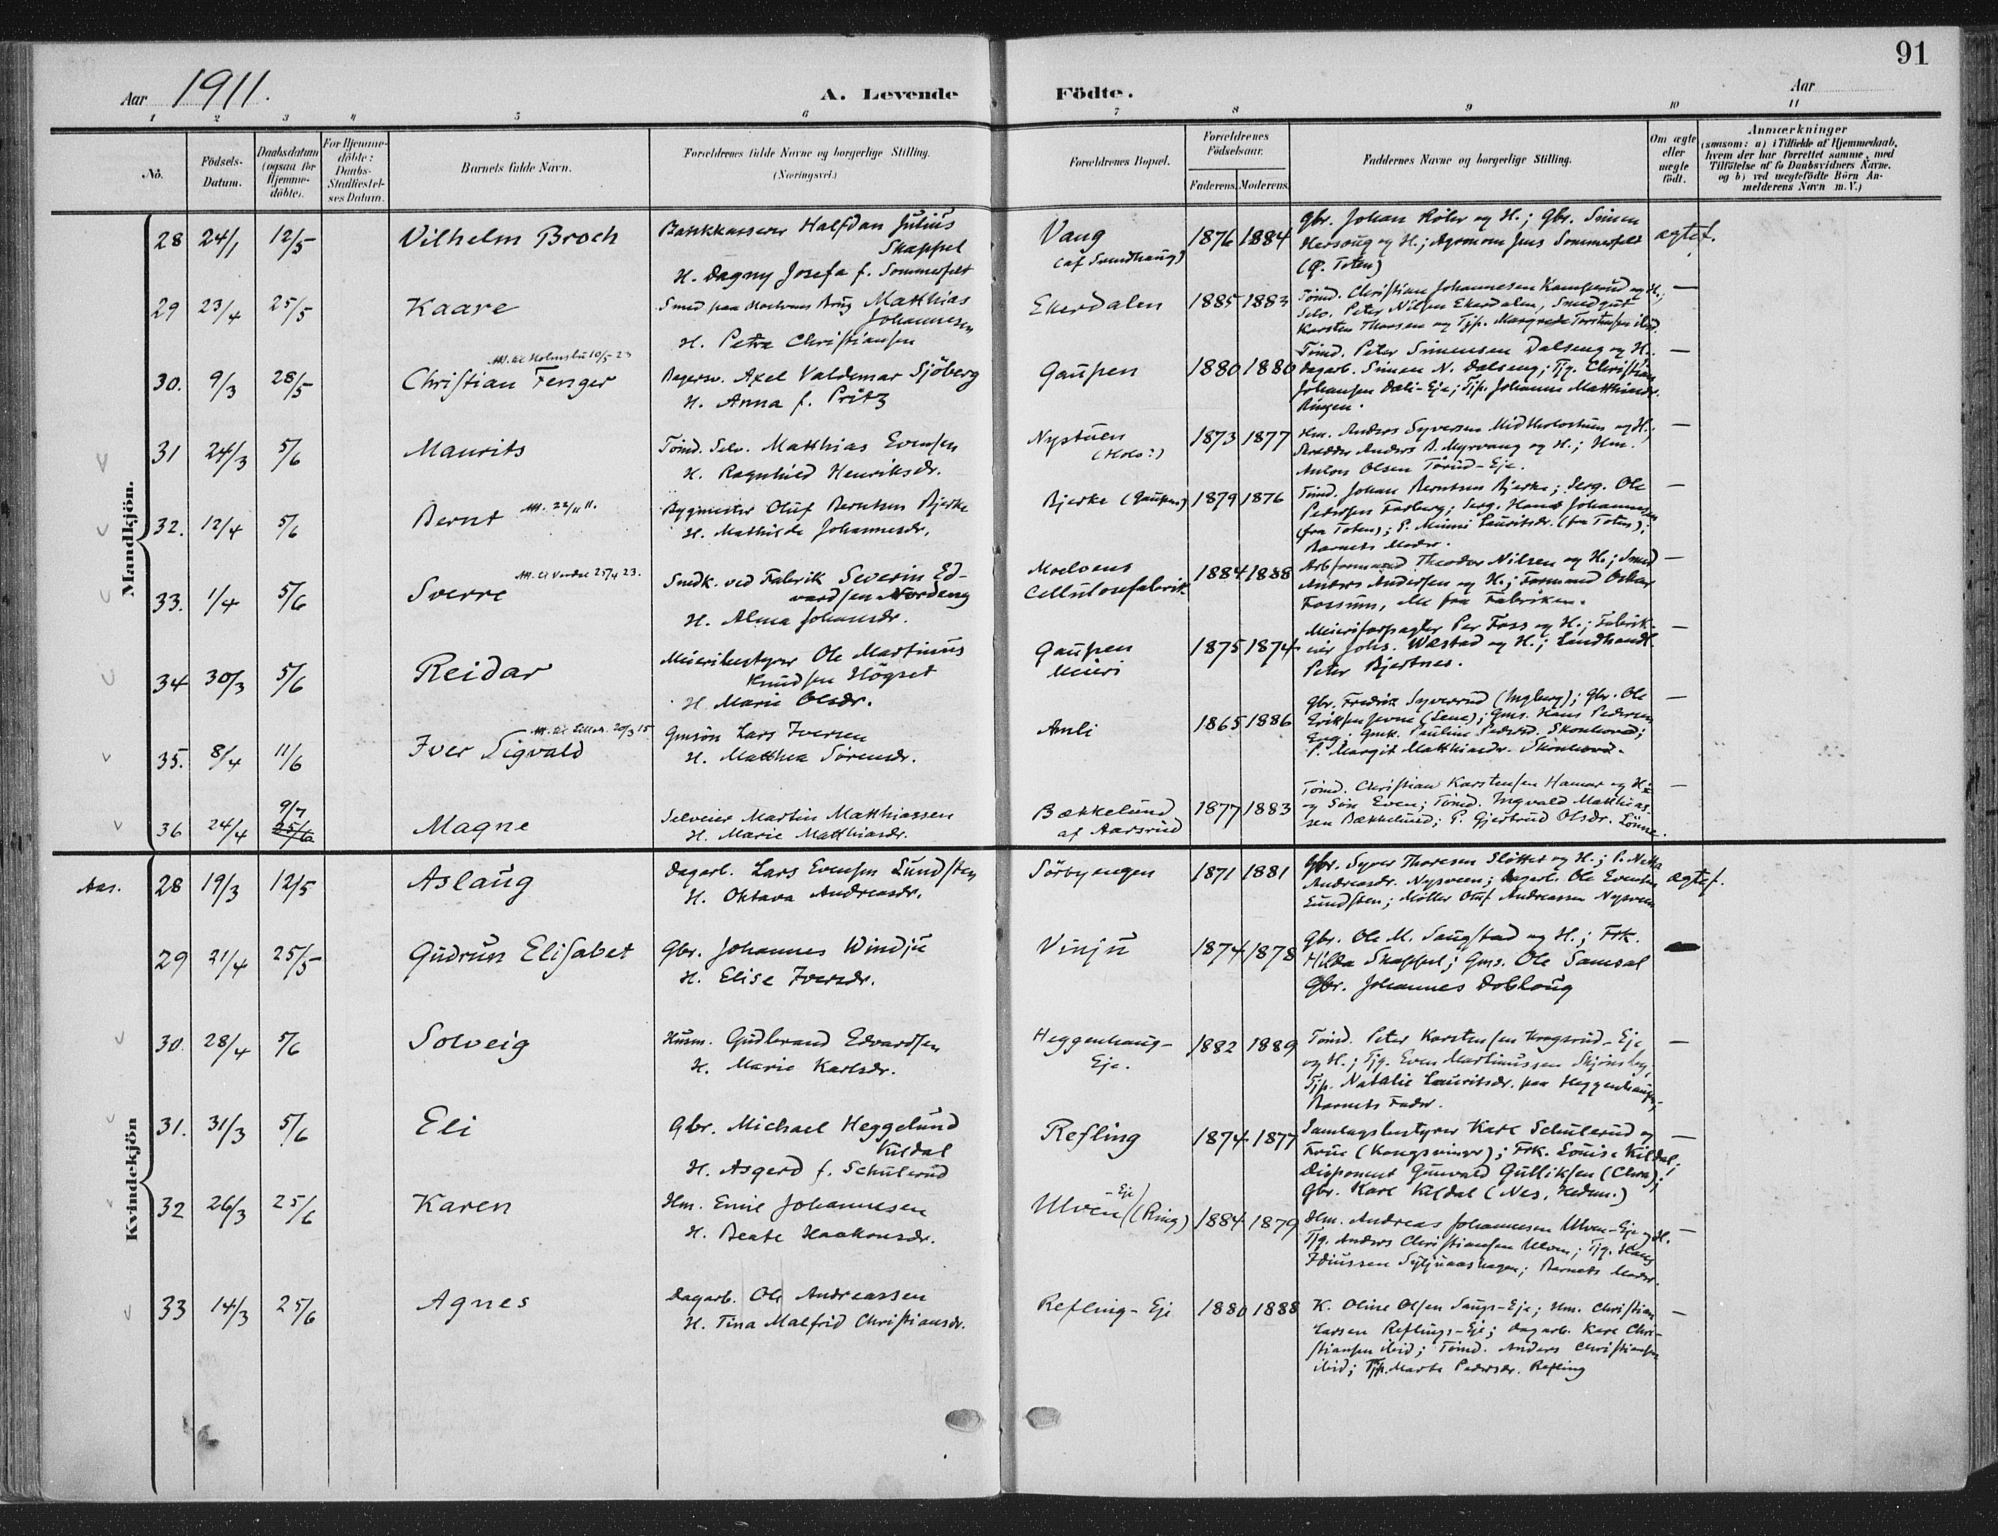 91
Aar 1911.
A. Levende Födte.
Aar
1 2 3 4 5 6 7 8 9 10 11
No.
Födsels-Datum.
Daabsdatum (ogsaa for Hjemme-döbte).
For Hjemme-döbte: Daabs-Stadfæstel-ses Datum.
Barnets fulde Navn.
Forældrenes fulde Navne og borgerlige Stilling. (Næringsvei.)
Forældrenes Bopæl.
Forældrenes Födselsaar.
Faderens. Moderens.
Faddernes Navne og borgerlige Stilling.
Om ægte eller uægte födt.
Anmærkninger (saasom: a) i Tilfælde af Hjemmedaab, hvem der har forrettet samme, med Tilföielse af to Daabsvidners Navne, og b) ved uægtefödte Börn Anmelderens Navn m. V.)
Mandkjön.
28 24/1 12/5 Vilhelm Broch
Bankkasserer Halfdan Julius
Skappel
H. Dagny Josefa f. Sommerfelt
Vang
(af Sundhaug)
1876 1884
Gbr. Johan Röhr og H.; Gbr. Simen
Hersoug og H.; Agronom Jens Sommerfelt
(Ø. Toten)
ægtef.
29 23/4 25/5 Kaare
Smed paa Moelvens Brug Matthias
Johannesen
H. Petra Christiansen
Ekerdalen
1885 1883
Tömd. Christian Johannesen Kamperud og H.;
Selv. Peter Nilsen Ekerdalen, Smedgut
Karsten Thorsen og Tjp. Margrede Torstensen ibid.
—
30. 9/3 28/5 Christian Fenger
Att. til Holmsbu 10/5-23
Bagersv. Axel Valdemar Sjöberg
H. Anna f. Pritz
Gaupen
1880 1880
Tömd. Peter Simensen Dalseng og H.
Dagarb. Simen N. Dalseng; Tjg. Christian
Johansen Dali-Eje; Tjp. Johanne Matthiasdr.
Ringen.
—
31 24/3 5/6 Maurits
Tömd. Selv. Matthias Evensen
H. Ragnhild Henriksdr.
Nystuen
(Holo:)
1873 1877
Hm. Anders Syversen Midtholostuen og H.;
Skrædder Anders B. Myrvang og H.; Hm.
Anton Olsen Törud-Eje.
—
32. 12/4 5/6 Bernt Att. 22/11 11.
Bygmester Oluf Berntsen Bjerke
H. Mathilde Johannesdr.
Bjerke (Gaupen)
1879 1876
Tömd. Johan Berntsen Bjerke; Serg. Ole
Pedersen Farberg; Serg. Hans Johannesen
(fra Toten); P. Minni Lauritsdr. (fra Toten);
Barnets Moder.
—
33. 1/4 5/6 Sverre
Att. til Verdal 25/4 23.
Smdk. ved Fabrik Severin Ed-
vardsen Nordeng
H. Alma Johansdr.
Moelvens
Cellulosefabrik
1884 1888
Arbformand Theodor Nilsen og H.; Smed
Anders Andersen og H.; Formand Oskar
Fossum, alle fra Fabriken.
—
34 30/3 5/6 Reidar
Meieribestyrer Ole Martinus
Knudsen Högset
H. Marie Olsdr.
Gaupen
Meieri
1875 1874
Meieriforpagter Per Foss og H.; Fabrik-
eier Johs. Wæstad og H.; Landhandl.
Peter Bjertnes.
—
35. 8/4 11/6 Iver Sigvald
Att. til Lilleh. 20/3 15
Gmsön Lars Iversen
H. Matthea Sörensdr.
Anli
1865 1886
Gbr. Fredrik Syverud (Ingberg); Gbr. Ole
Eriksen Jevne (Lena); Gms. Hans Pedersen
Eng; Gmk. Pauline Pedersd. Skonhovd;
P. Margit Matthiasdr. Skonhovd.
—
36 24/4 9/7 25/6 Magne
Selveier Martin Matthiassen
H. Marie Matthiasdr.
Bækkelund
af Aarsrud
1877 1883
Tömd. Christian Karstensen Hamar og H.
og Sön Even; Tömd. Ingvald Matthias-
sen Bækkelund; P. Gjertrud Olsdr. Lönne.
—
Kvindekjön
Aas. 28 19/3 12/5 Aslaug
Dagarb. Lars Evensen Lundsten
H. Oktava Andreasdr.
Sörbyengen
1871 1881
Gbr. Syver Thoresen Slöttet og H.; P. Netta
Andreasdr. Nysveen; Dagarb. Ole Evensen
Lundsten; Möller Oluf Andreassen Nysveen
ægtef.
29 21/4 25/5 Gudrun Elisabet
Gbr. Johannes Windju
H. Elise Iversdr.
Vinju
1874 1878
Gbr. Ole M. Saugstad og H.; Frk.
Hilda Skappel; Gms. Ole Samsal
Gbr. Johannes Dobloug
—
30. 28/4 5/6 Solveig
Husm. Gudbrand Edvardsen
H. Marie Karlsdr.
Heggenhaug-
Eje.
1882 1889
Tömd. Peter Karstensen Krogsrud-Eje
og H.; Tjg. Even Martinussen Skjönsby,
Tjp. Natalie Lauritsdr. paa Heggenhaugen;
Barnets Fader.
—
31. 31/3 5/6 Eli
Gbr. Michael Heggelund
Kildal
H. Asgerd f. Schulerud
Refling
1874 1877
Samlagsbestyrer Karl Schulerud og
Frue (Kongsvinger); Frk. Louise Kildal;
Disponent Gunvald Gulliksen (Chra);
Gbr. Karl Kildal (Nes, Hedm.)
—
32 26/3 25/6 Karen
Hm. Emil Johannesen
H. Beate Haakonsdr.
Ulven-Eje (Ring)
1884 1879
Hm. Andreas Johannesen Ulven-Eje og H.
Tjg. Anders Christiansen Ulven; Tjg. Hans
Barnets Moder.
—
33 14/3 25/6 Agnes
Dagarb. Ole Andreassen
H. Tina Malfrid Christiansdr.
Refling-Eje
1880 1888
K. Oline Olsen Saugs-Eje; Hm. Christian
Larsen Reflings-Eje; Dagarb. Karl Chri-
stiansen ibid; Tömd. Anders Christiansen
ibid; Tjp. Marte Pedersdr. Refling
—